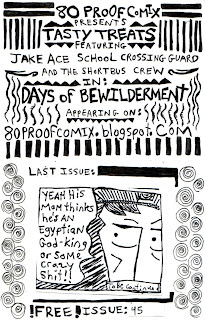 80 PROOF COMIX
PRESENTS
TASTY TREATS
FEATURING
JAKE ACE SCHOOL CROSSING GUARD
AND THE SHORTBUS CREW
IN:
DAYS OF BEWILDERMENT
APPEARING ON:
80PROOFCOMIX.blogspot.COM
LAST ISSUE:
YEAH HIS
MOM thinks
he's AN
EGyptian
God-king
or Some
crazy
Shit!!
to Be Continued
!FREE! ISSUE: 45